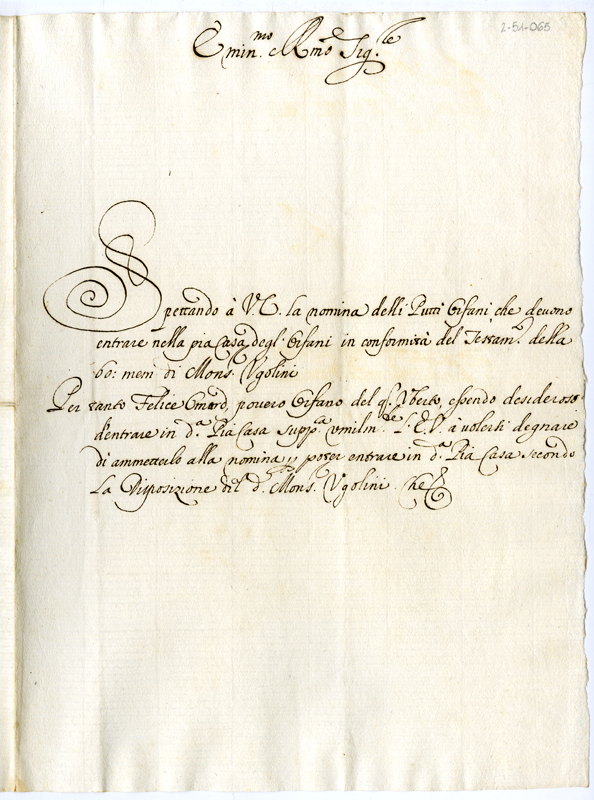 2-51-065
Emin.mo e R.mo Sig.re
Spettando à V. E. la nomina delli Putti Orfani che devono
entrare nella pia Casa degl'Orfani in conformità del Testam.o della
bo: mem di Mons. Ugolini
Per tanto Felice povero Orfano del q. Uberto, essendo desideroso
d'entrare in d.a Pia Casa supp.ca umilm.te l'E. V. à volerli degnare
di ammetterlo alla nomina p poter entrare in d.a Pia Casa secondo
La Disposizione del d.o Mons. Ugolini. Che